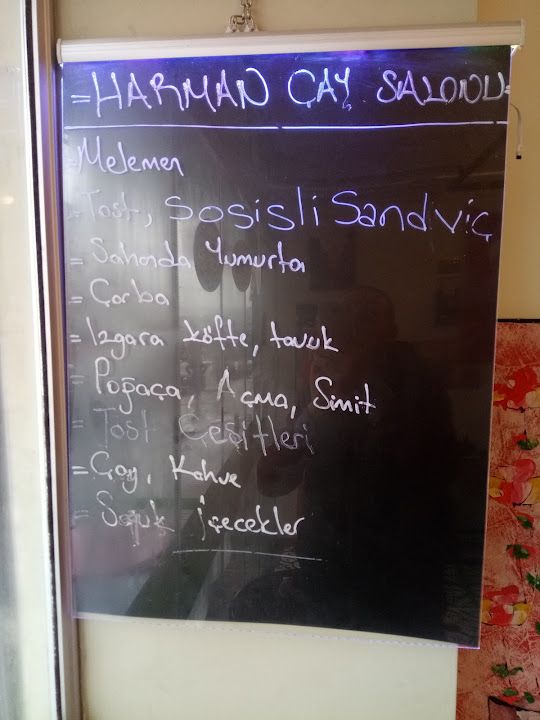 =HARMAN ÇAY SALONU=
=Melemen
=Tost, Sosisli Sandviç
=Sahanda Yumurta
=Çorba
=Izgara köfte, tavuk
=Poğaça, Açma, Simit
=Tost Çeşitleri
=Çay, Kahve
=Soğuk içecekler